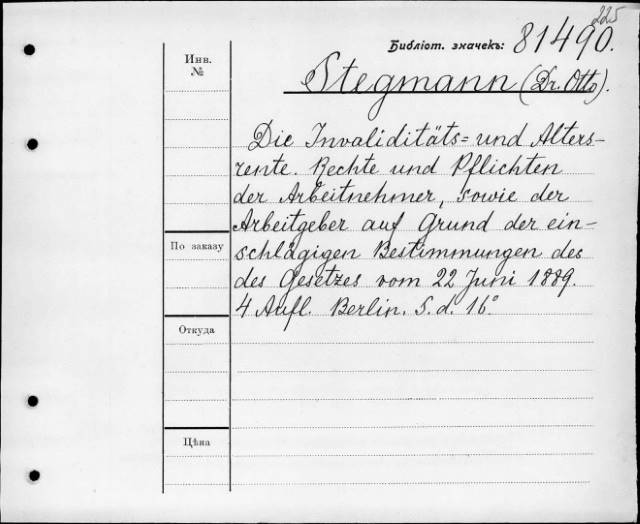 225
Библіот. значекъ: 81490.
Инв.
№
Stegmann (Dr. Otto).
Die Invaliditäts= und Alters-
rente. Rechte und Pflichten
der Arbeitnehmer, sowie der
Arbeitgeber auf Grund der ein-
По заказу
schlägigen Bestimmungen des
des Gesetzes vom 22 Juni 1889.
4 Aufl. Berlin. S. d. 16°
Откуда
Цѣна